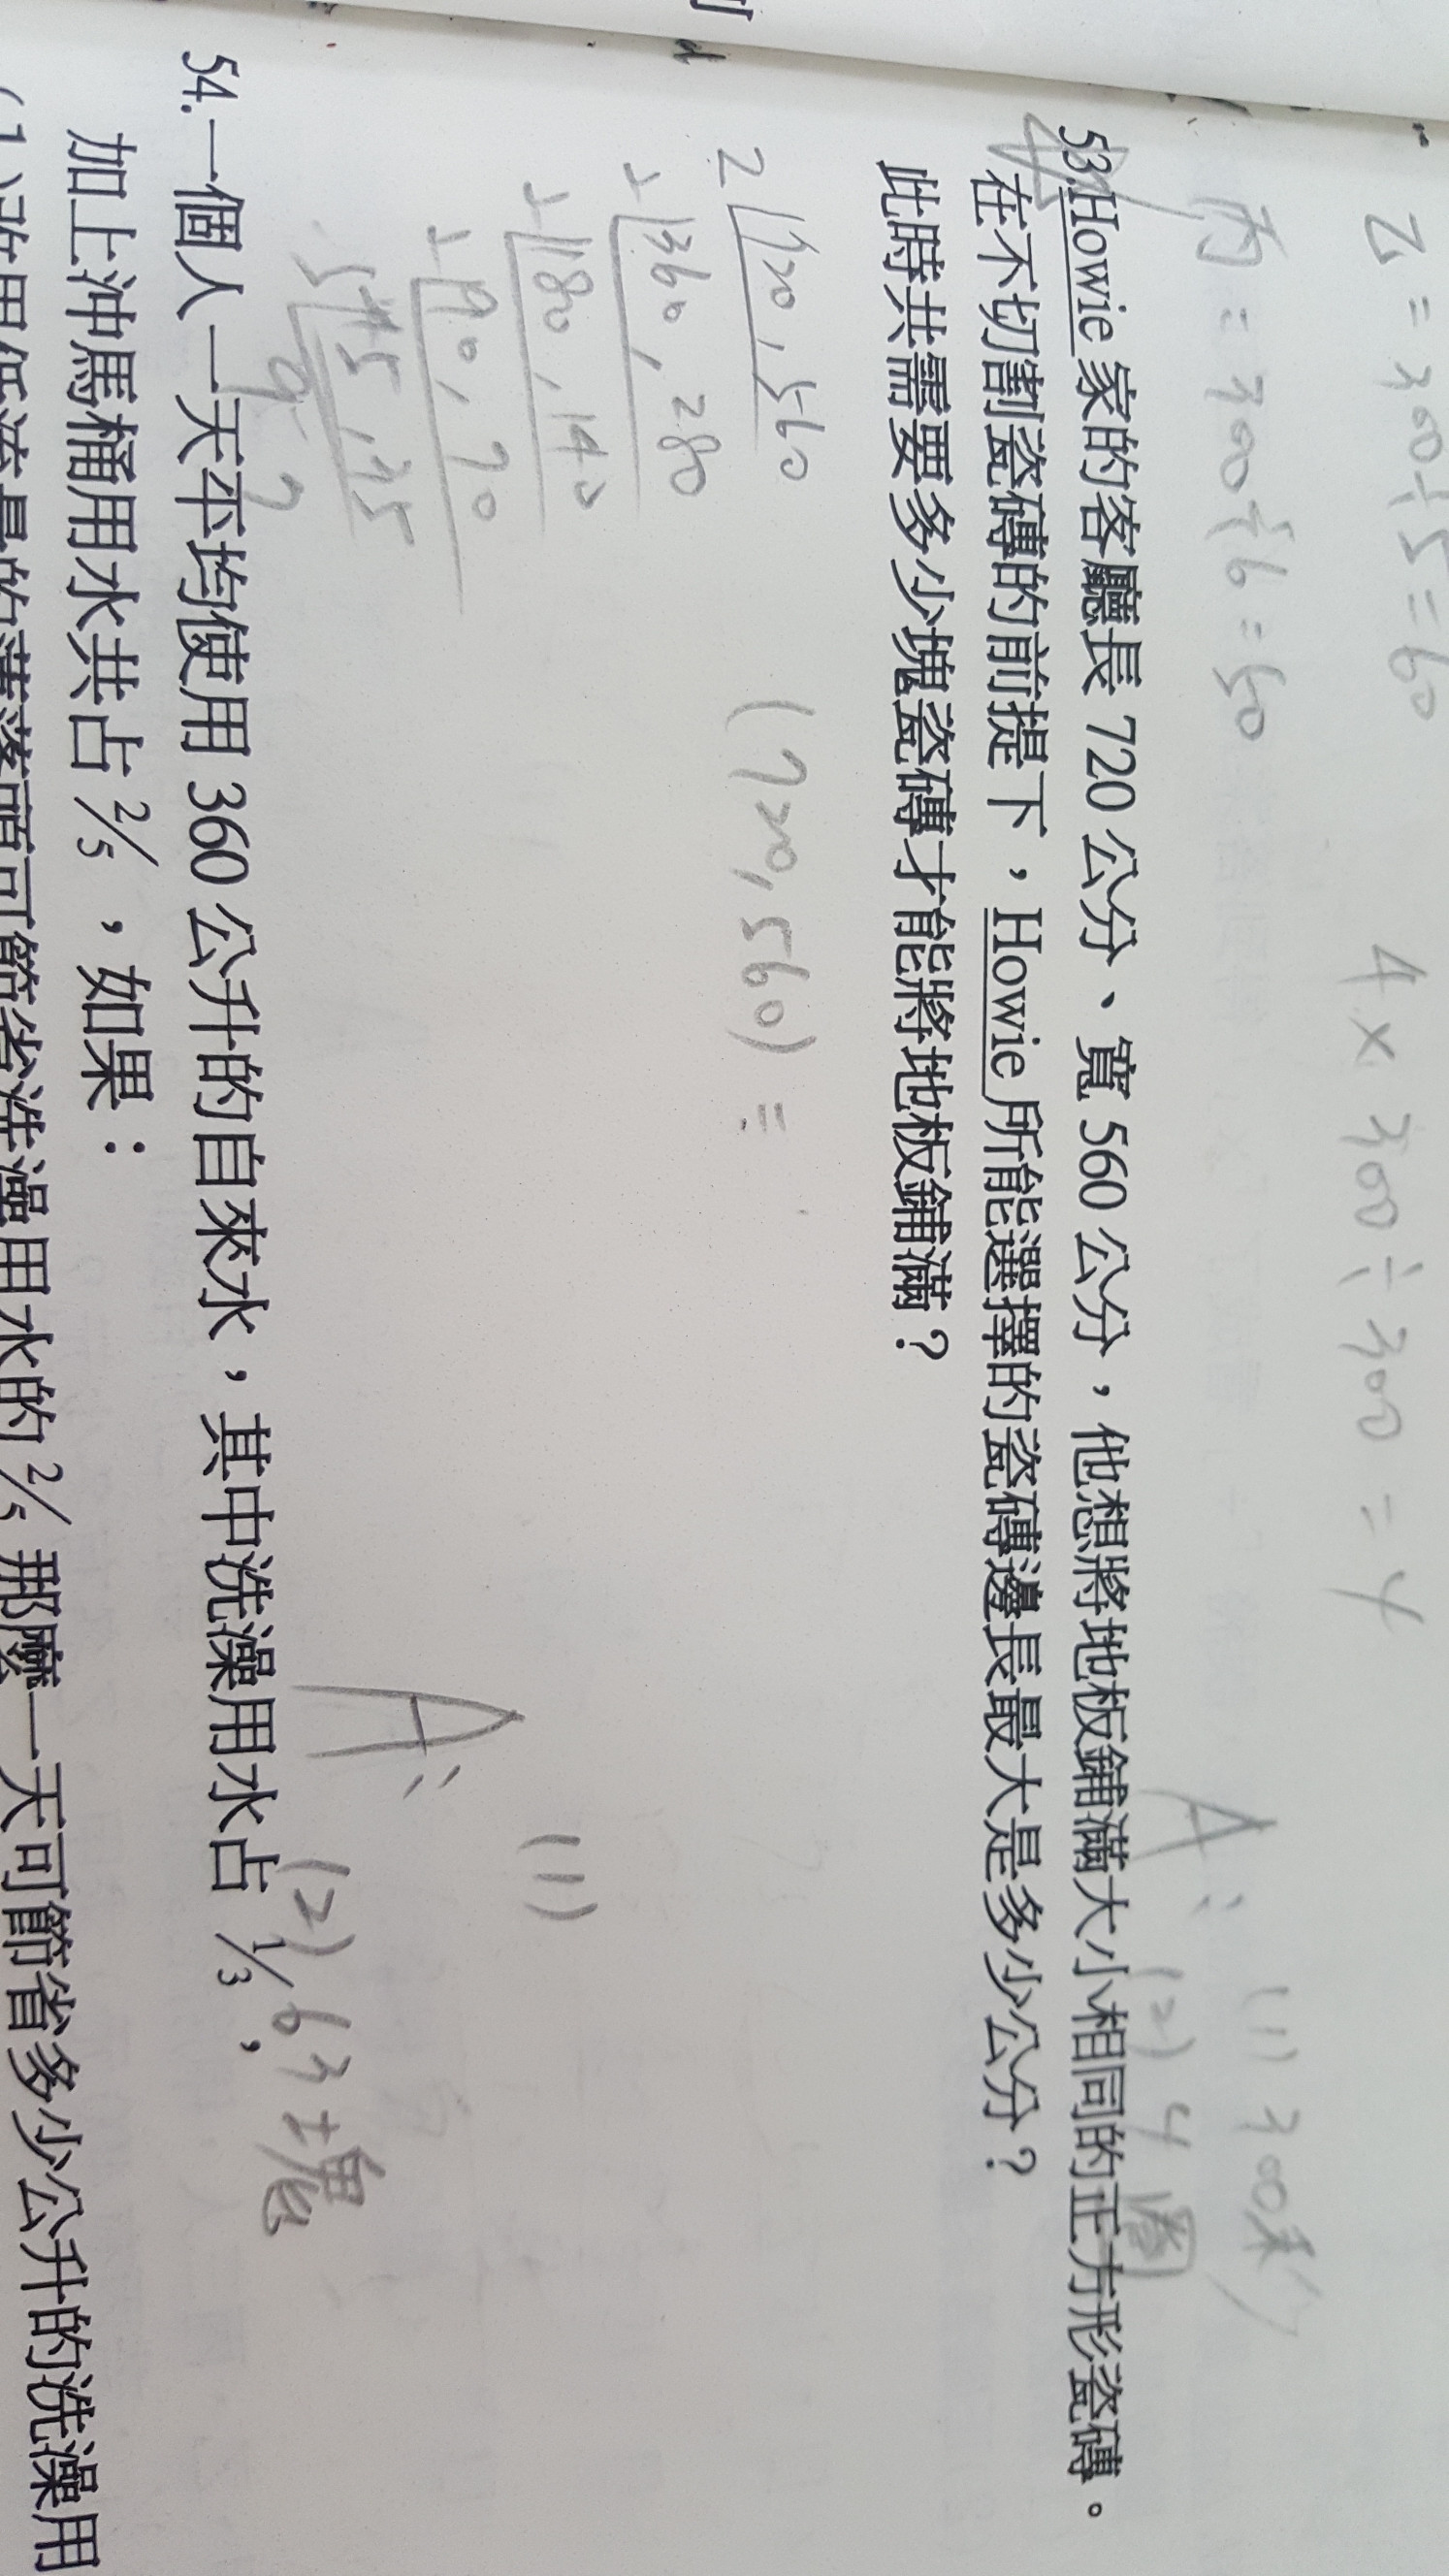 乙=300÷5=60
4×300÷300=4
丙=300÷6=50
A:
(1) 300秒
(2) 4圈
53.Howie家的客廳長720公分、寬560公分，他想將地板鋪滿大小相同的正方形瓷磚。
在不切割瓷磚的前提下，Howie所能選擇的瓷磚邊長最大是多少公分？
此時共需要多少塊瓷磚才能將地板鋪滿？
2 720,560
2 360,280
2 180,140
2 90,70
5 45,35
9 7
(720,560)=
A:
(1)
(2) 63塊
54.一個人一天平均使用360公升的自來水，其中洗澡用水占1/3，
加上沖馬桶用水共占2/5，如果：
省洗澡用水的2/5 那麼一天可節省多少公升的洗澡用